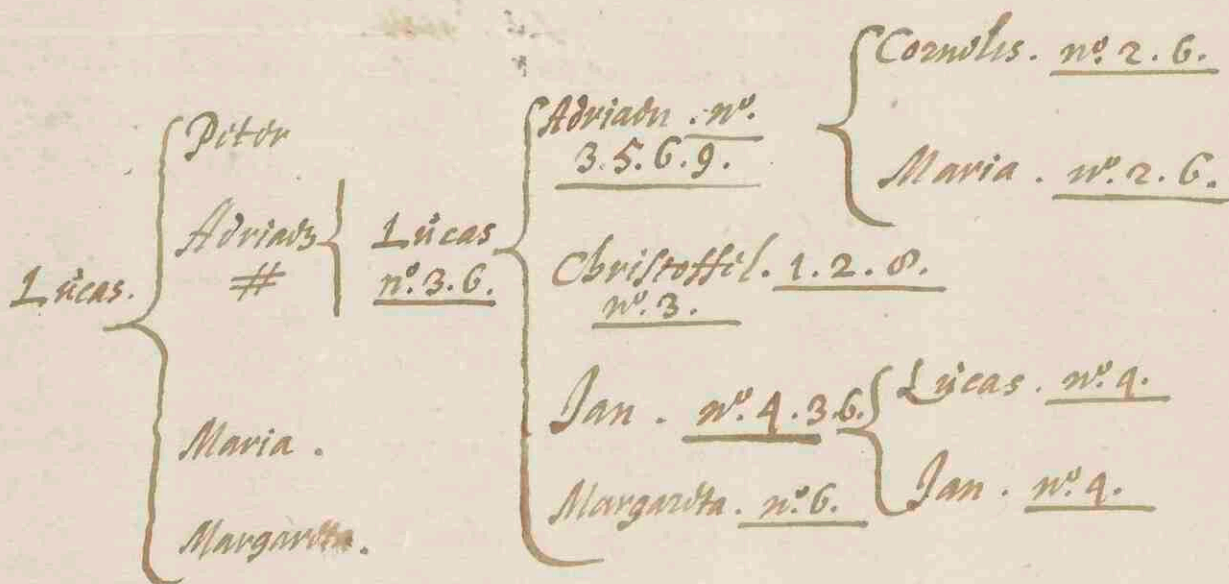 Lucas.
Peter
Adriaen
#
Maria.
Margareta.
Lucas
nº. 3. 6.
Adriaen. nº.
3. 5. 6. 9.
Christoffel. 1. 2. 8.
nº. 3.
Jan. nº. 4. 3. 6.
Margareta. nº. 6.
Cornelis. nº. 2. 6.
Maria. nº. 2. 6.
Lucas. nº. 4.
Jan. nº. 4.